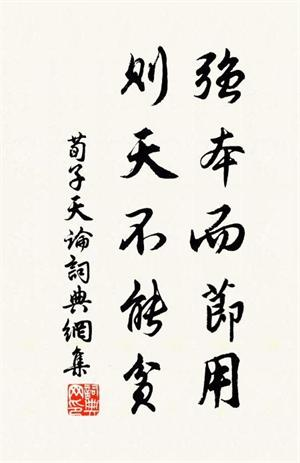 强本而節用
则天不能贫
荀子天論詞典網集